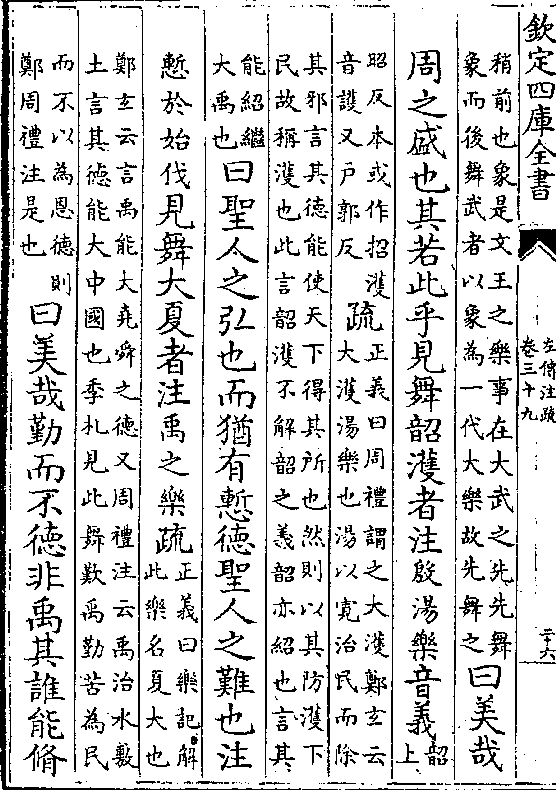 欽定四庫全書
左傳注疏
卷三十九
二十六
稍前也象是文王之樂事在大武之先先舞
象而後舞武者以象為一代大樂故先舞之
曰美哉
周之盛也其若此乎見舞韶濩者注殷湯樂音義
韶上
昭反本或作招濩
音護又戶郭反
疏
正義曰周禮謂之大濩鄭玄云
大濩湯樂也湯以寛治民而除
其邪言其德能使天下得其所也然則以其防濩下
民故稱濩也此言韶濩不解韶之義韶亦紹也言其
能紹繼
大禹也
曰聖人之弘也而猶有慙德聖人之難也注
慙於始伐見舞大夏者注禹之樂疏
正義曰樂記解
此樂名夏大也
鄭玄云言禹能大堯舜之德又周禮注云禹治水敷
土言其德能大中國也季札見此舞歎禹勤苦為民
而不以為恩德則
鄭周禮注是也
曰美哉勤而不徳非禹其誰能脩